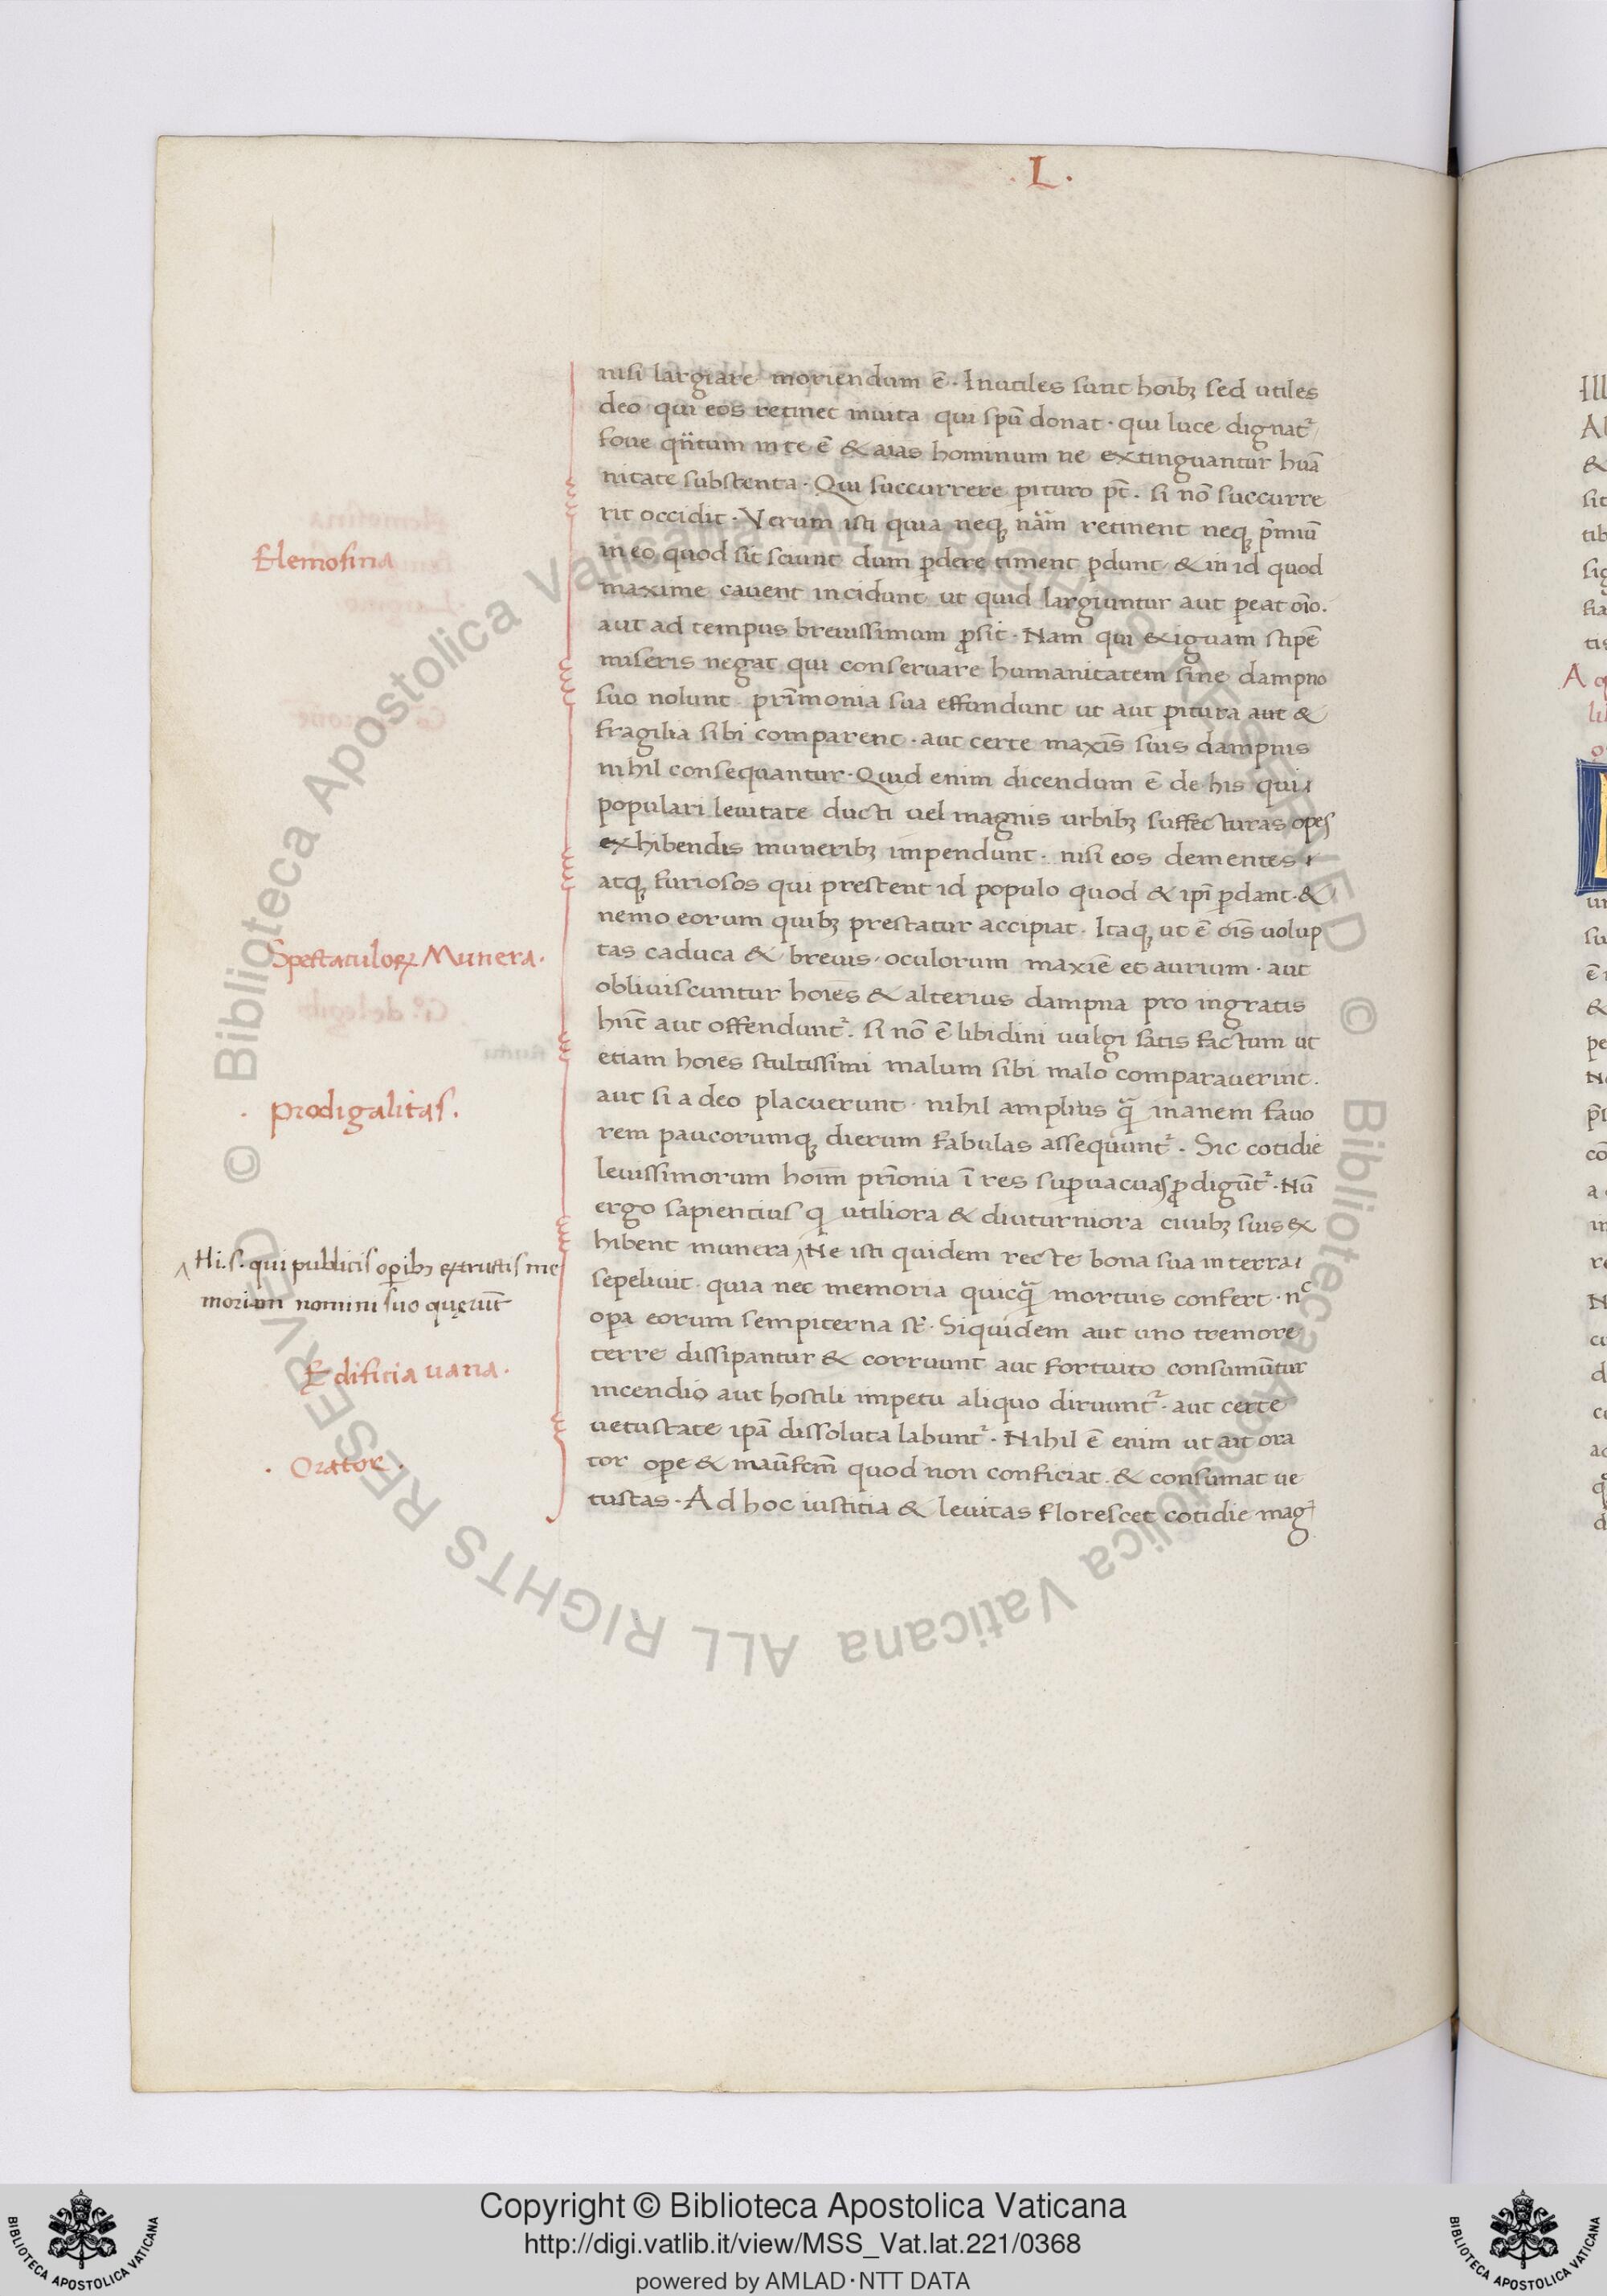 . L .
nisi largiare moriendum ē · Inutiles sunt hoībꝫ sed utiles
deo qui eos retinet in uita qui spū donat · qui luce dignat᷑
foue qn̄tum in te ē & aīas hominum ne extinguantur huā
nitate substenta · Qui succurrere ꝑituro pt̄ . si nō succurre
rit occidit · Verum isti quia neqꝫ nām retinent neqꝫ p̄miū
in eo quod sit sciunt dum ꝑdere timent ꝑdunt & in id quod
maxime cauent incidunt ut quid largiuntur aut ꝑeat oīo .
aut ad tempus breuissimum ꝓsit · Nam qui exiguam stipē
miseris negat qui conseruare humanitatem sine dampno
suo nolunt pr̄imonia sua effundunt ut aut ꝑitura aut &
fragilia sibi comparent · aut certe maxīs suis dampnis
nihil consequantur · Quid enim dicendum ē de his qui
populari leuitate ducti uel magnis urbibꝫ suffecturas opes
exhibendis muneribꝫ impendunt · nisi eos dementes
atqꝫ furiosos qui prestent id populo quod & ipī ꝑdant · &
nemo eorum quibꝫ prestatur accipiat · Itaqꝫ ut ē oīs uolup
tas caduca & breuis oculorum maxīe et aurium · aut
obliuiscuntur hoīes & alterius dampna pro ingratis
hn̄t aut offendunt᷑ . si nō ē libidini uulgi satis factum ut
etiam hoīes stultissimi malum sibi malo comparauerint .
aut si adeo placuerunt · nihil amplius qᷓ inanem fauo
rem paucorumqꝫ dierum fabulas assequunt᷑ . Sic cotidie
leuissimorum hoīm pr̄ionia ī res suꝑuacuas ꝓdigūt᷑ · Nū
ergo sapientius q utiliora & diuturniora ciuibꝫ suis ex
hibent munera ‸ Ne isti quidem recte bona sua in terra
sepeliuit · quia nec memoria quicqᷓ mortuis confert · nͨ
oꝑa eorum sempiterna st̄ · Siquidem aut uno tremore
terre dissipantur & corruunt aut fortuito consumūtur
incendio aut hostili impetu aliquo diruunt᷑ · aut certe
uetustate ipā dissoluta labunt᷑ · Nihil ē enim ut ait ora
tor oꝑe & maūfctm̄ quod non conficiat . & consumat ue
tustas · Ad hoc iustitia & leuitas florescet cotidie mag᷑
Elemosina
Spectaculoꝝ Munera .
. prodigalitas .
‸ Hi . s . qui publicis oꝑibꝫ extructis me
moriam nomini suo quęrūt
Edificia uana .
. Orator .
Ill
&
sit
tib
Copyright © Biblioteca Apostolica Vaticana
http://digi.vatlib.it/view/MSS_Vat.lat.221/0368
powered by AMLAD · NTT DATA
BIBLIOTECA APOSTOLICA VATICANA
BIBLIOTECA APOSTOLICA VATICANA
© Biblioteca Apostolica Vaticana ALL RIGHTS RESERVED
© Biblioteca Apostolica Vaticana ALL RIGHTS RESERVED